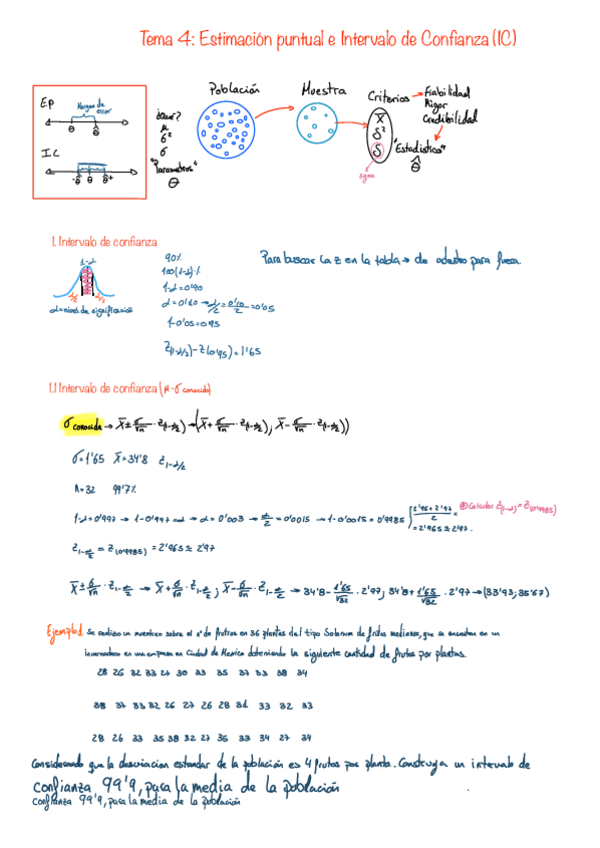 Tema 4: Estimación puntual e Intervalo de Confianza (IC)
E.P
Margen de error
θ θ̂
I.C
-θ̂ θ θ̂+
μ
σ²
σ
"Parametros"
θ
Población
Muestra
Criterios → Fiabilidad
Rigor
Credibilidad
X̄
S²
S
"Estadístico"
θ̂
sigma
1. Intervalo de confianza
1-α
α/2 α/2
α=nivel de significación
90%
100(1-α)%
1-α=0'90
α=0'10 → α/2 = 0'10/2 = 0'05
1-0'05=0'95
Z(1-α/2) - Z(0'95) = 1'65
Para buscar la z en la tabla → de adentro para fuera.
1.1 Intervalo de confianza (μ-σ conocida)
σ conocida → X̄ ± σ/√n · Z(1-α/2) → (X̄ + σ/√n · Z(1-α/2); X̄ - σ/√n · Z(1-α/2))
σ=1'65 X̄=34'8 Z1-α/2
n=32 99'7%
1-α=0'997 → 1-0'997=α → α=0'003 → α/2 = 0'0015 → 1-0'0015=0'9985
2'96+2'97/2 =
=2'965≈2'97.
Calcular Z(1-α) = Z(0'9985)
Z1-α/2 = Z(0'9985) = 2'965≈2'97
X̄ ± σ/√n · Z1-α/2 → X̄ + σ/√n · Z1-α/2 ; X̄ - σ/√n · Z1-α/2 → 34'8 - 1'65/√32 · 2'97; 34'8 + 1'65/√32 · 2'97 → (33'93; 35'67)
Ejemplo1 Se realizo un muestreo sobre el nº de frutos en 36 plantas del tipo Solanum de frutos medianos, que se encuentran en un
invernadero en una empresa en Ciudad de Mexico obteniendo la siguiente cantidad de frutos por plantas.
28 26 32 33 27 30 33 35 37 33 38 34
38 37 33 32 26 27 26 28 31 33 32 33
28 26 33 35 38 32 27 35 33 34 27 34
Considerando que la desviacion estandar de la población es 4 frutos por planta. Construya un intervalo de
confianza 99'9, para la media de la población
confianza 99'9, para la media de la población